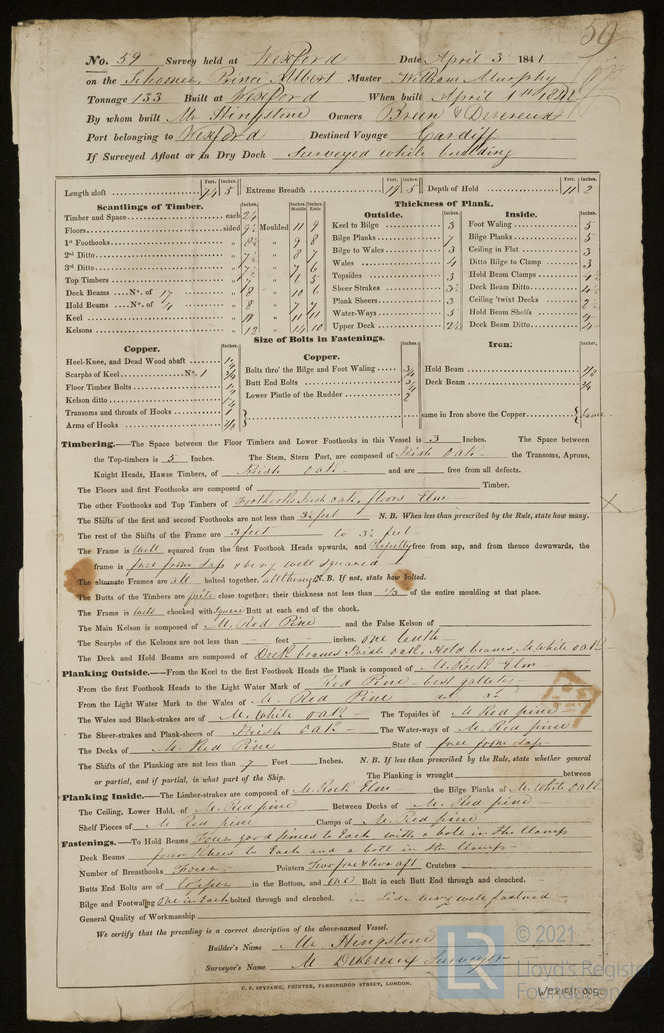 59
No. 59 Survey held at Wexford Date April 3 1841
on the Schooner Prince Albert Master William Murphy
Tonnage 133 Built at Wexford When built April 1st 1841
By whom built Mr Hingstone Owners Breen & Devereux
Port belonging to Wexford Destined Voyage Cardiff
If Surveyed Afloat or in Dry Dock Surveyed while building
Feet. Inches. Feet. Inches. Feet. Inches.
Length aloft 74 5 Extreme Breadth 19 5 Depth of Hold 11 2
Scantlings of Timber. Thickness of Plank.
Inches. Inches Middle Inches Ends Outside. Inches. Inside. Inches.
Timber and Space each 24 Keel to Bilge 3 Foot Waling 5
Floors sided 9½ Moulded 11 9 Bilge Planks 7 Bilge Planks 5
1st Foothooks „ 8½ „ 9 8 Bilge to Wales 3 Ceiling in Flat 3
2nd Ditto „ 7½ „ 8 7 Wales 4 Ditto Bilge to Clamp 3
3rd Ditto „ 7½ „ 7 6 Topsides 3 Hold Beam Clamps 4½
Top Timbers „ 7 „ 6 5 Sheer Strakes 3½ Deck Beam Ditto 4½
Deck Beams No. of 17 „ 8 „ 10 6 Plank Sheers 3 Ceiling 'twixt Decks 2½
Hold Beams No. of 4 „ 8 „ 7 7 Water-Ways 5 Hold Beam Shelfs 4
Keel „ „ 11 11 Upper Deck 2½ Deck Beam Ditto 4
Kelsons „ 12 „ 14 10
Size of Bolts in Fastenings.
Copper. Inches. Copper. Inches. Iron: Inches.
Heel-Knee, and Dead Wood abaft
Scarphs of Keel No. 1 ¾ Bolts thro' the Bilge and Foot Waling ¾ Hold Beam
Floor Timber Bolts Butt End Bolts Deck Beam ¾
Kelson ditto Lower Pintle of the Rudder 2
Transoms and throats of Hooks 1 same in Iron above the Copper same
Arms of Hooks
Timbering.—The Space between the Floor Timbers and Lower Foothooks in this Vessel is 3 Inches. The Space between
the Top-timbers is 5 Inches. The Stem, Stern Post, are composed of Irish Oak the Transoms, Aprons,
Knight Heads, Hawse Timbers, of Irish Oak and are free from all defects.
The Floors and first Foothooks are composed of Timber.
The other Foothooks and Top Timbers of Foothooks Irish oak, floors Elm
The Shifts of the first and second Foothooks are not less than 3½ feet N. B. When less than prescribed by the Rule, state how many.
The rest of the Shifts of the Frame are 3 feet to 3½ feet
The Frame is Well squared from the first Foothook Heads upwards, and Perfectly free from sap, and from thence downwards, the
frame is free from sap & very well squared
The alternate Frames are all bolted together, all through N. B. If not, state how bolted.
The Butts of the Timbers are quite close together; their thickness not less than 1/3 of the entire moulding at that place.
The Frame is well chocked with Square Butt at each end of the chock.
The Main Kelson is composed of M. Red Pine and the False Kelson of
The Scarphs of the Kelsons are not less than feet inches, one length
The Deck and Hold Beams are composed of Deck beams Irish oak, Hold beams M. White oak
Planking Outside.—From the Keel to the first Foothook Heads the Plank is composed of M. Rock Elm
From the first Foothook Heads to the Light Water Mark of Red Pine best
From the Light Water Mark to the Wales of M. Red Pine
The Wales and Black-strakes are of M. White oak The Topsides of M Red pine
The Sheer-strakes and Plank-sheers of Irish oak The Water-ways of M. Red pine
The Decks of M. Red Pine State of free from sap
The Shifts of the Planking are not less than 7 Feet Inches. N. B. If less than prescribed by the Rule, state whether general
or partial, and if partial, in what part of the Ship. The Planking is wrought between
Planking Inside.—The Limber-strakes are composed of M. Rock Elm the Bilge Planks of M. White oak
The Ceiling, Lower Hold, of M. Red pine Between Decks of M. Red pine
Shelf Pieces of M Red pine Clamps of M. Red pine
Fastenings.—To Hold Beams Four good knees to Each with a bolt in the Clamp
Deck Beams four knees to Each and a bolt in the Clamp
Number of Breasthooks Four Pointers Two fore & two aft Crutches
Butts End Bolts are of Copper in the Bottom, and one Bolt in each Butt End through and clenched.
Bilge and Footwaling one in Each bolted through and clenched. in side very well fastened
General Quality of Workmanship
We certify that the preceding is a correct description of the above-named Vessel.
Builder's Name Mr. Hingstone
Surveyor's Name M Devereux Surveyor
C. F. SEYFANG, PRINTER, FARRINGDON STREET, LONDON.
LR © 2021
Lloyd's Register
Foundation